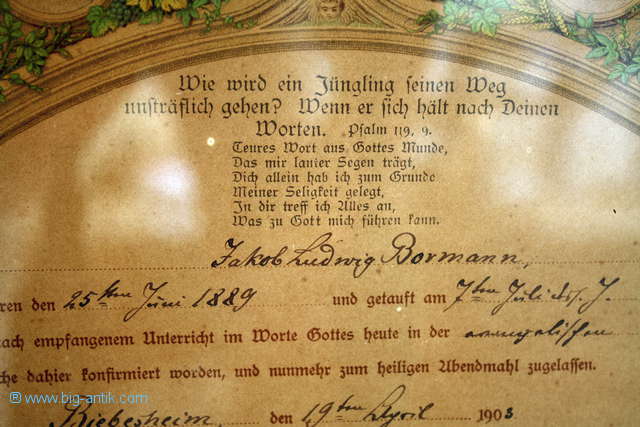 Wie wird ein Jüngling seinen Weg
unsträflich gehen? Wenn er sich hält nach Deinen
Worten. Psalm 119, 9.
Teures Wort aus Gottes Munde,
Das mir lauter Segen trägt,
Dich allein hab ich zum Grunde
Meiner Seligkeit gelegt,
In dir treff ich Alles an,
Was zu Gott mich führen kann.
Jakob Ludwig Bormann,
ren den 25ten Juni 1889 und getauft am 7ten Juli ds. J.
ach empfangenem Unterricht im Worte Gottes heute in der evangelischen
che dahier konfirmiert worden, und nunmehr zum heiligen Abendmahl zugelassen.
Biebesheim, den 19ten April 1903
www.big-antik.com